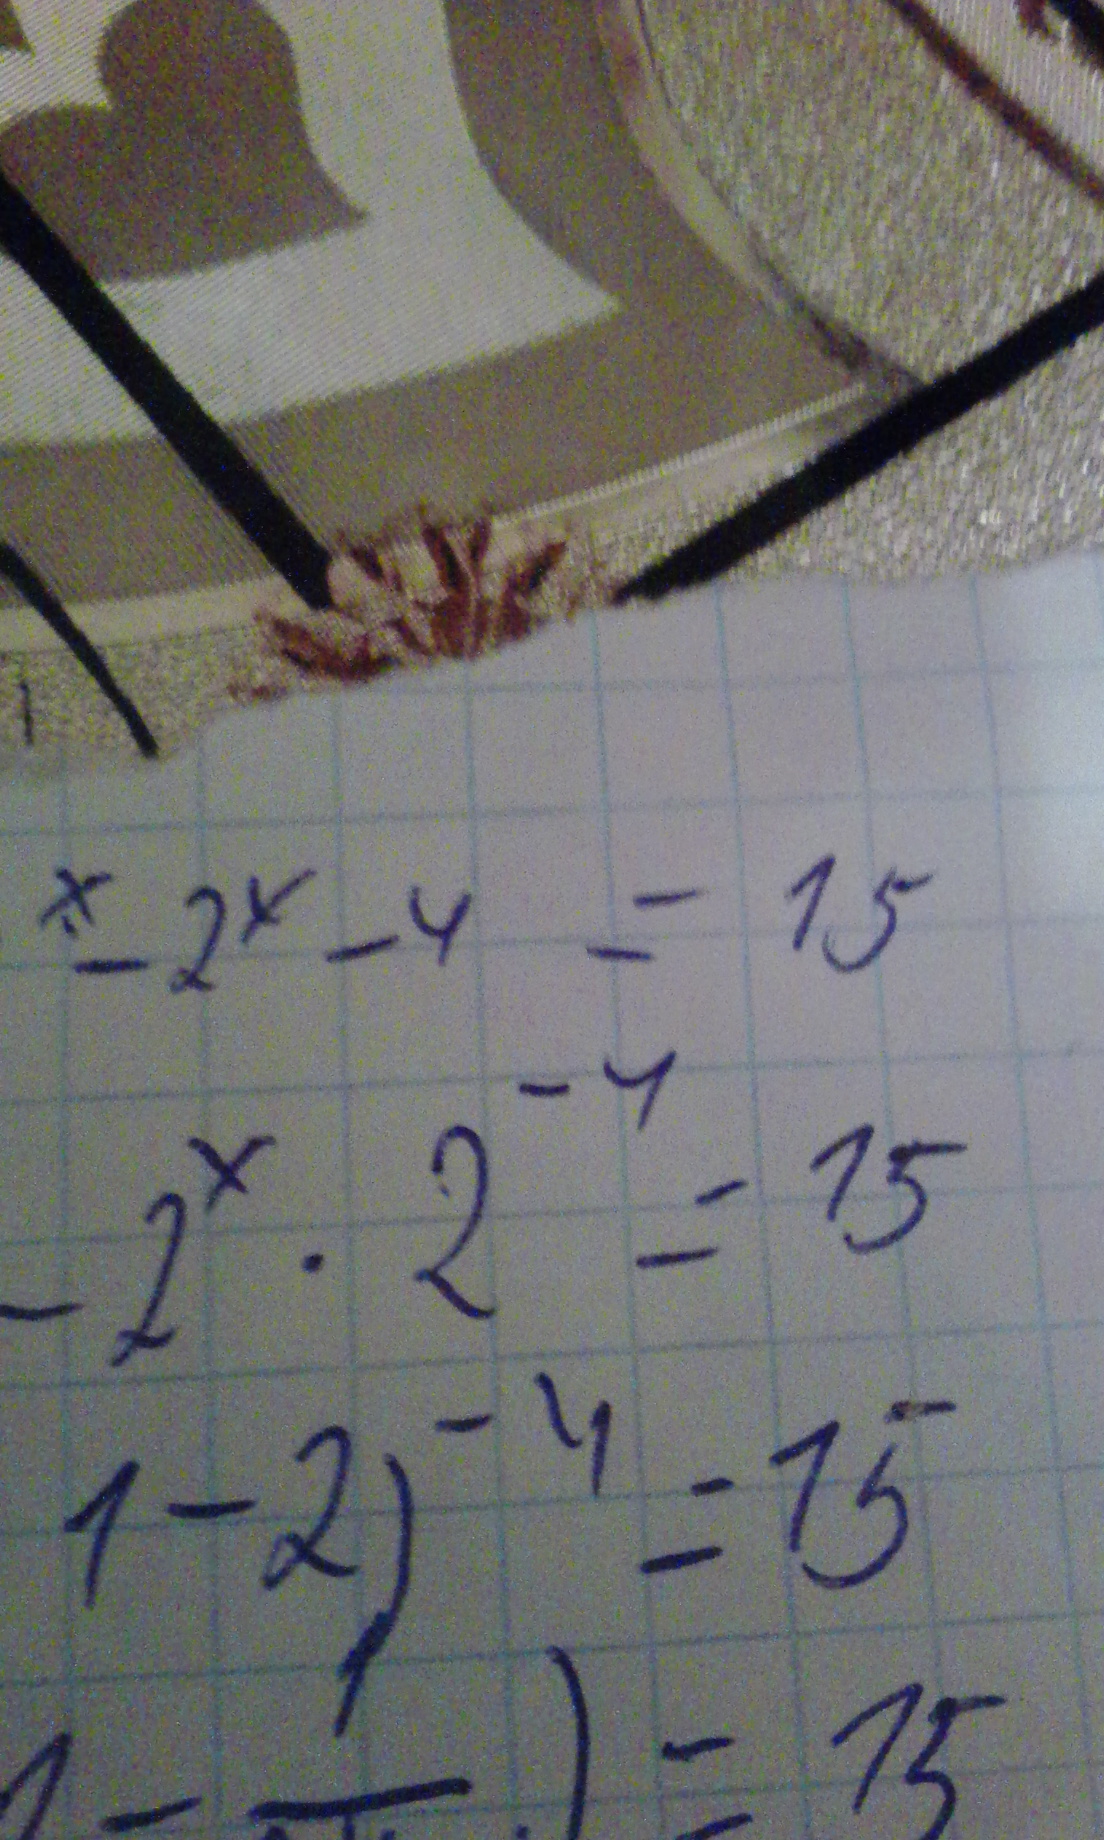 x - 2x - 4 = 15
- 2^x · 2^-4 = 15
1 - 2)^-4 = 15
1 - ) = 15